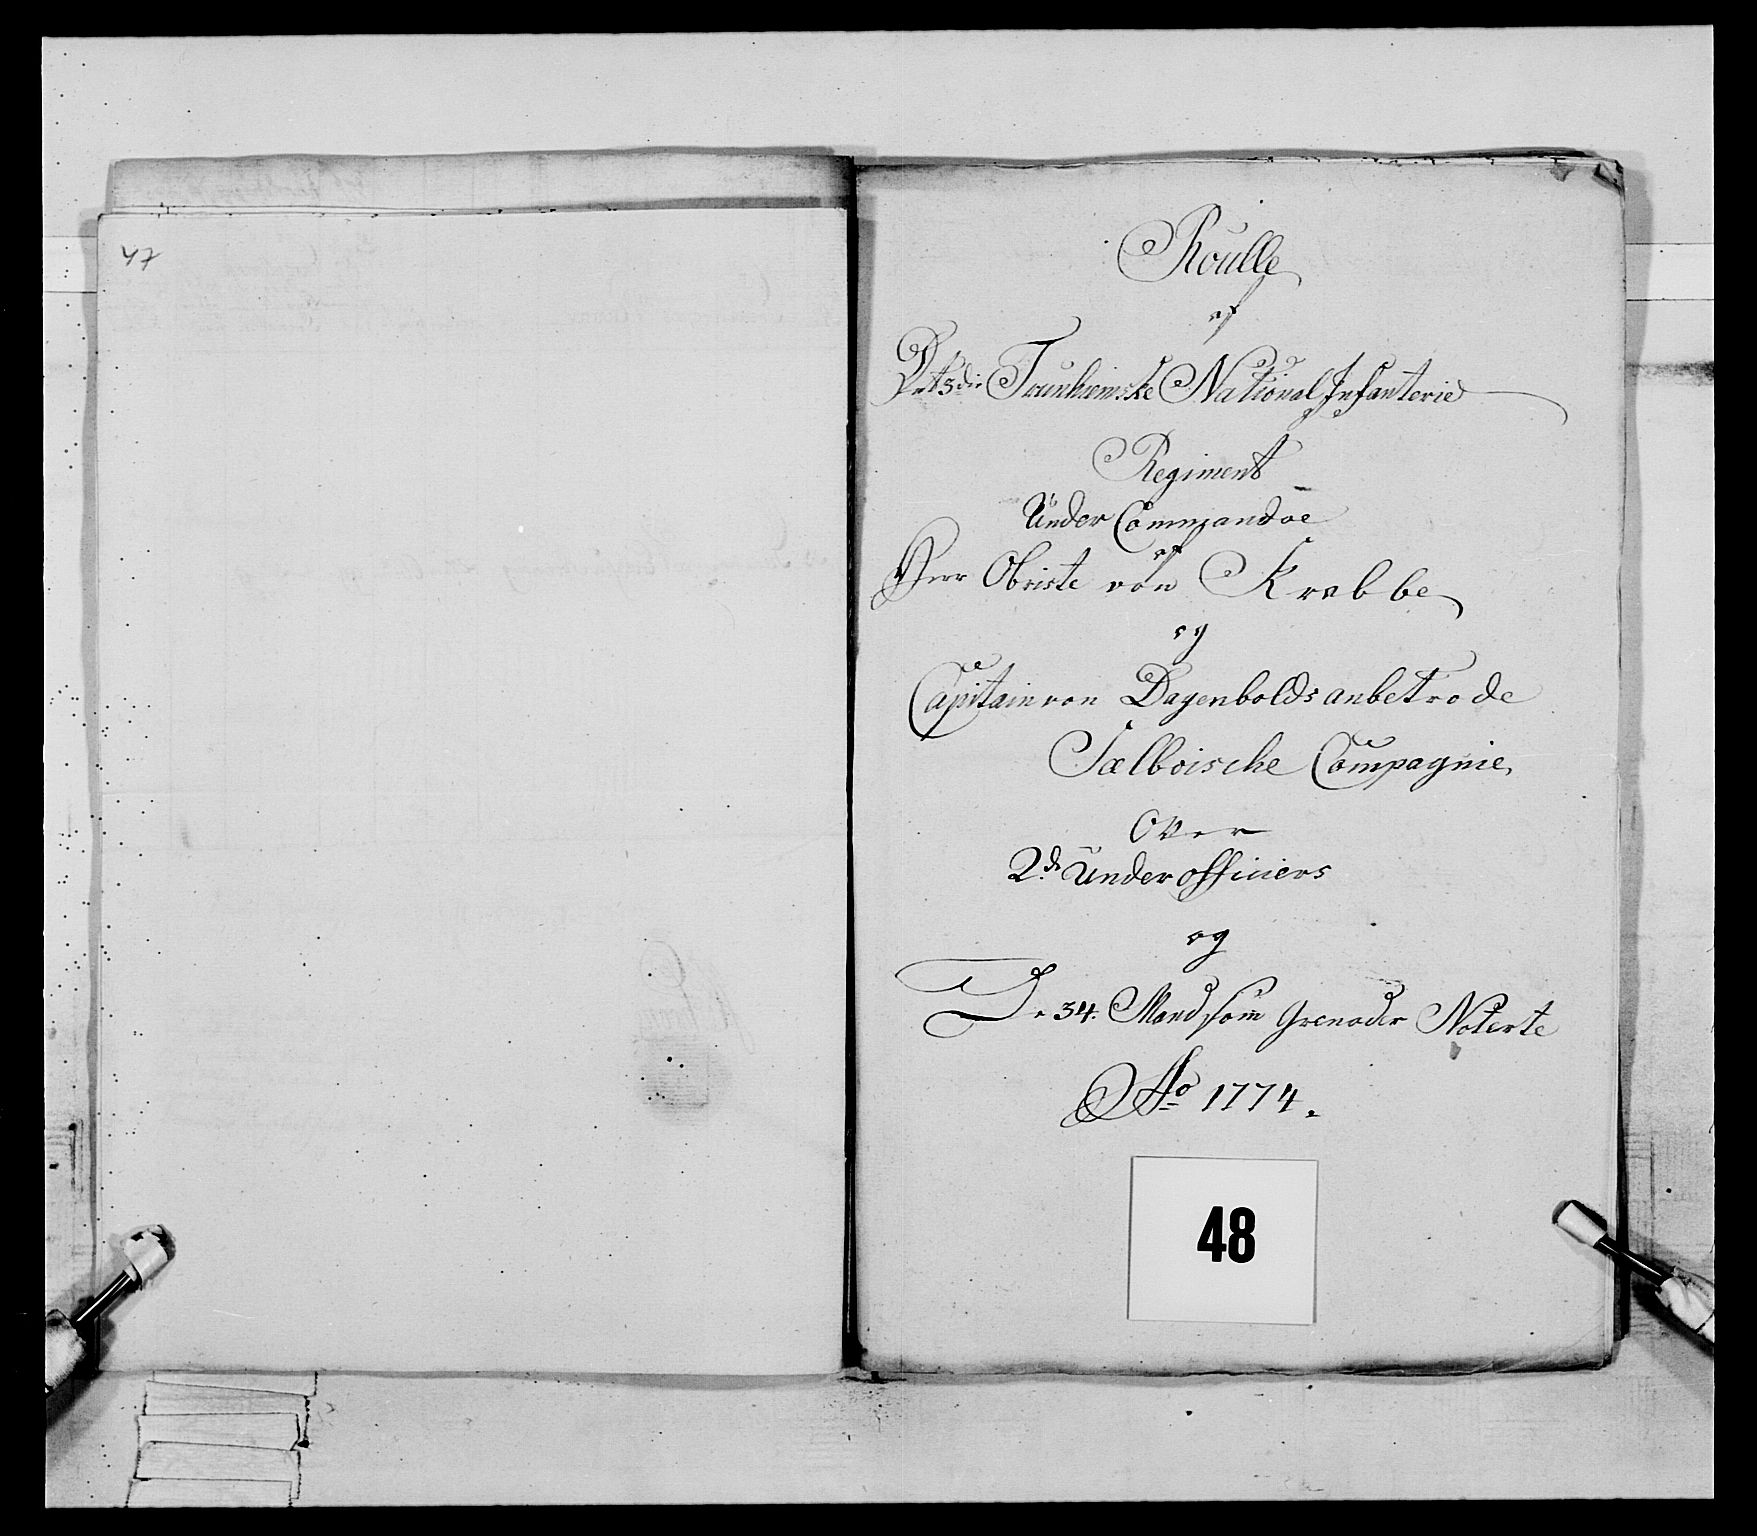 47
Roulle
af
Det 3die Trunhiemske National Infanterie
Regiment
Under Commandoe
af
Herr Obriste von Krabbe
og
Capitain von Dagenbolds anbetrode
Sælboische Compagnie,
Over
2de Underofficiers
og
De 34. Mand som Grenader Noterte
Ao 1774.
48